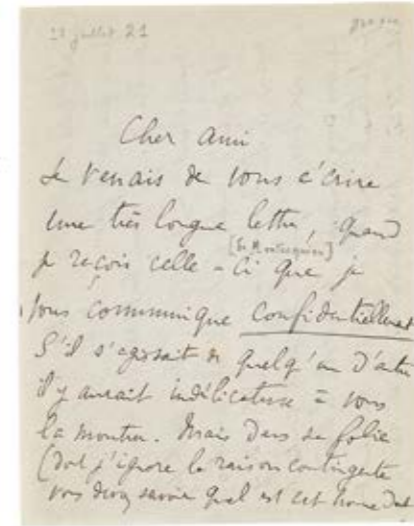 13 juillet 21
Cher ami
Je venais de vous écrire
une très longue lettre, quand
[de Montesquiou]
je reçois celle-ci que je
vous communique confidentiellement
S'il s'agissait de quelqu'un d'autre
il y aurait indélicatesse à vous
la montrer. Mais dans sa folie
(dont j'ignore la raison contingente
vous devez savoir quel est cet homme dont